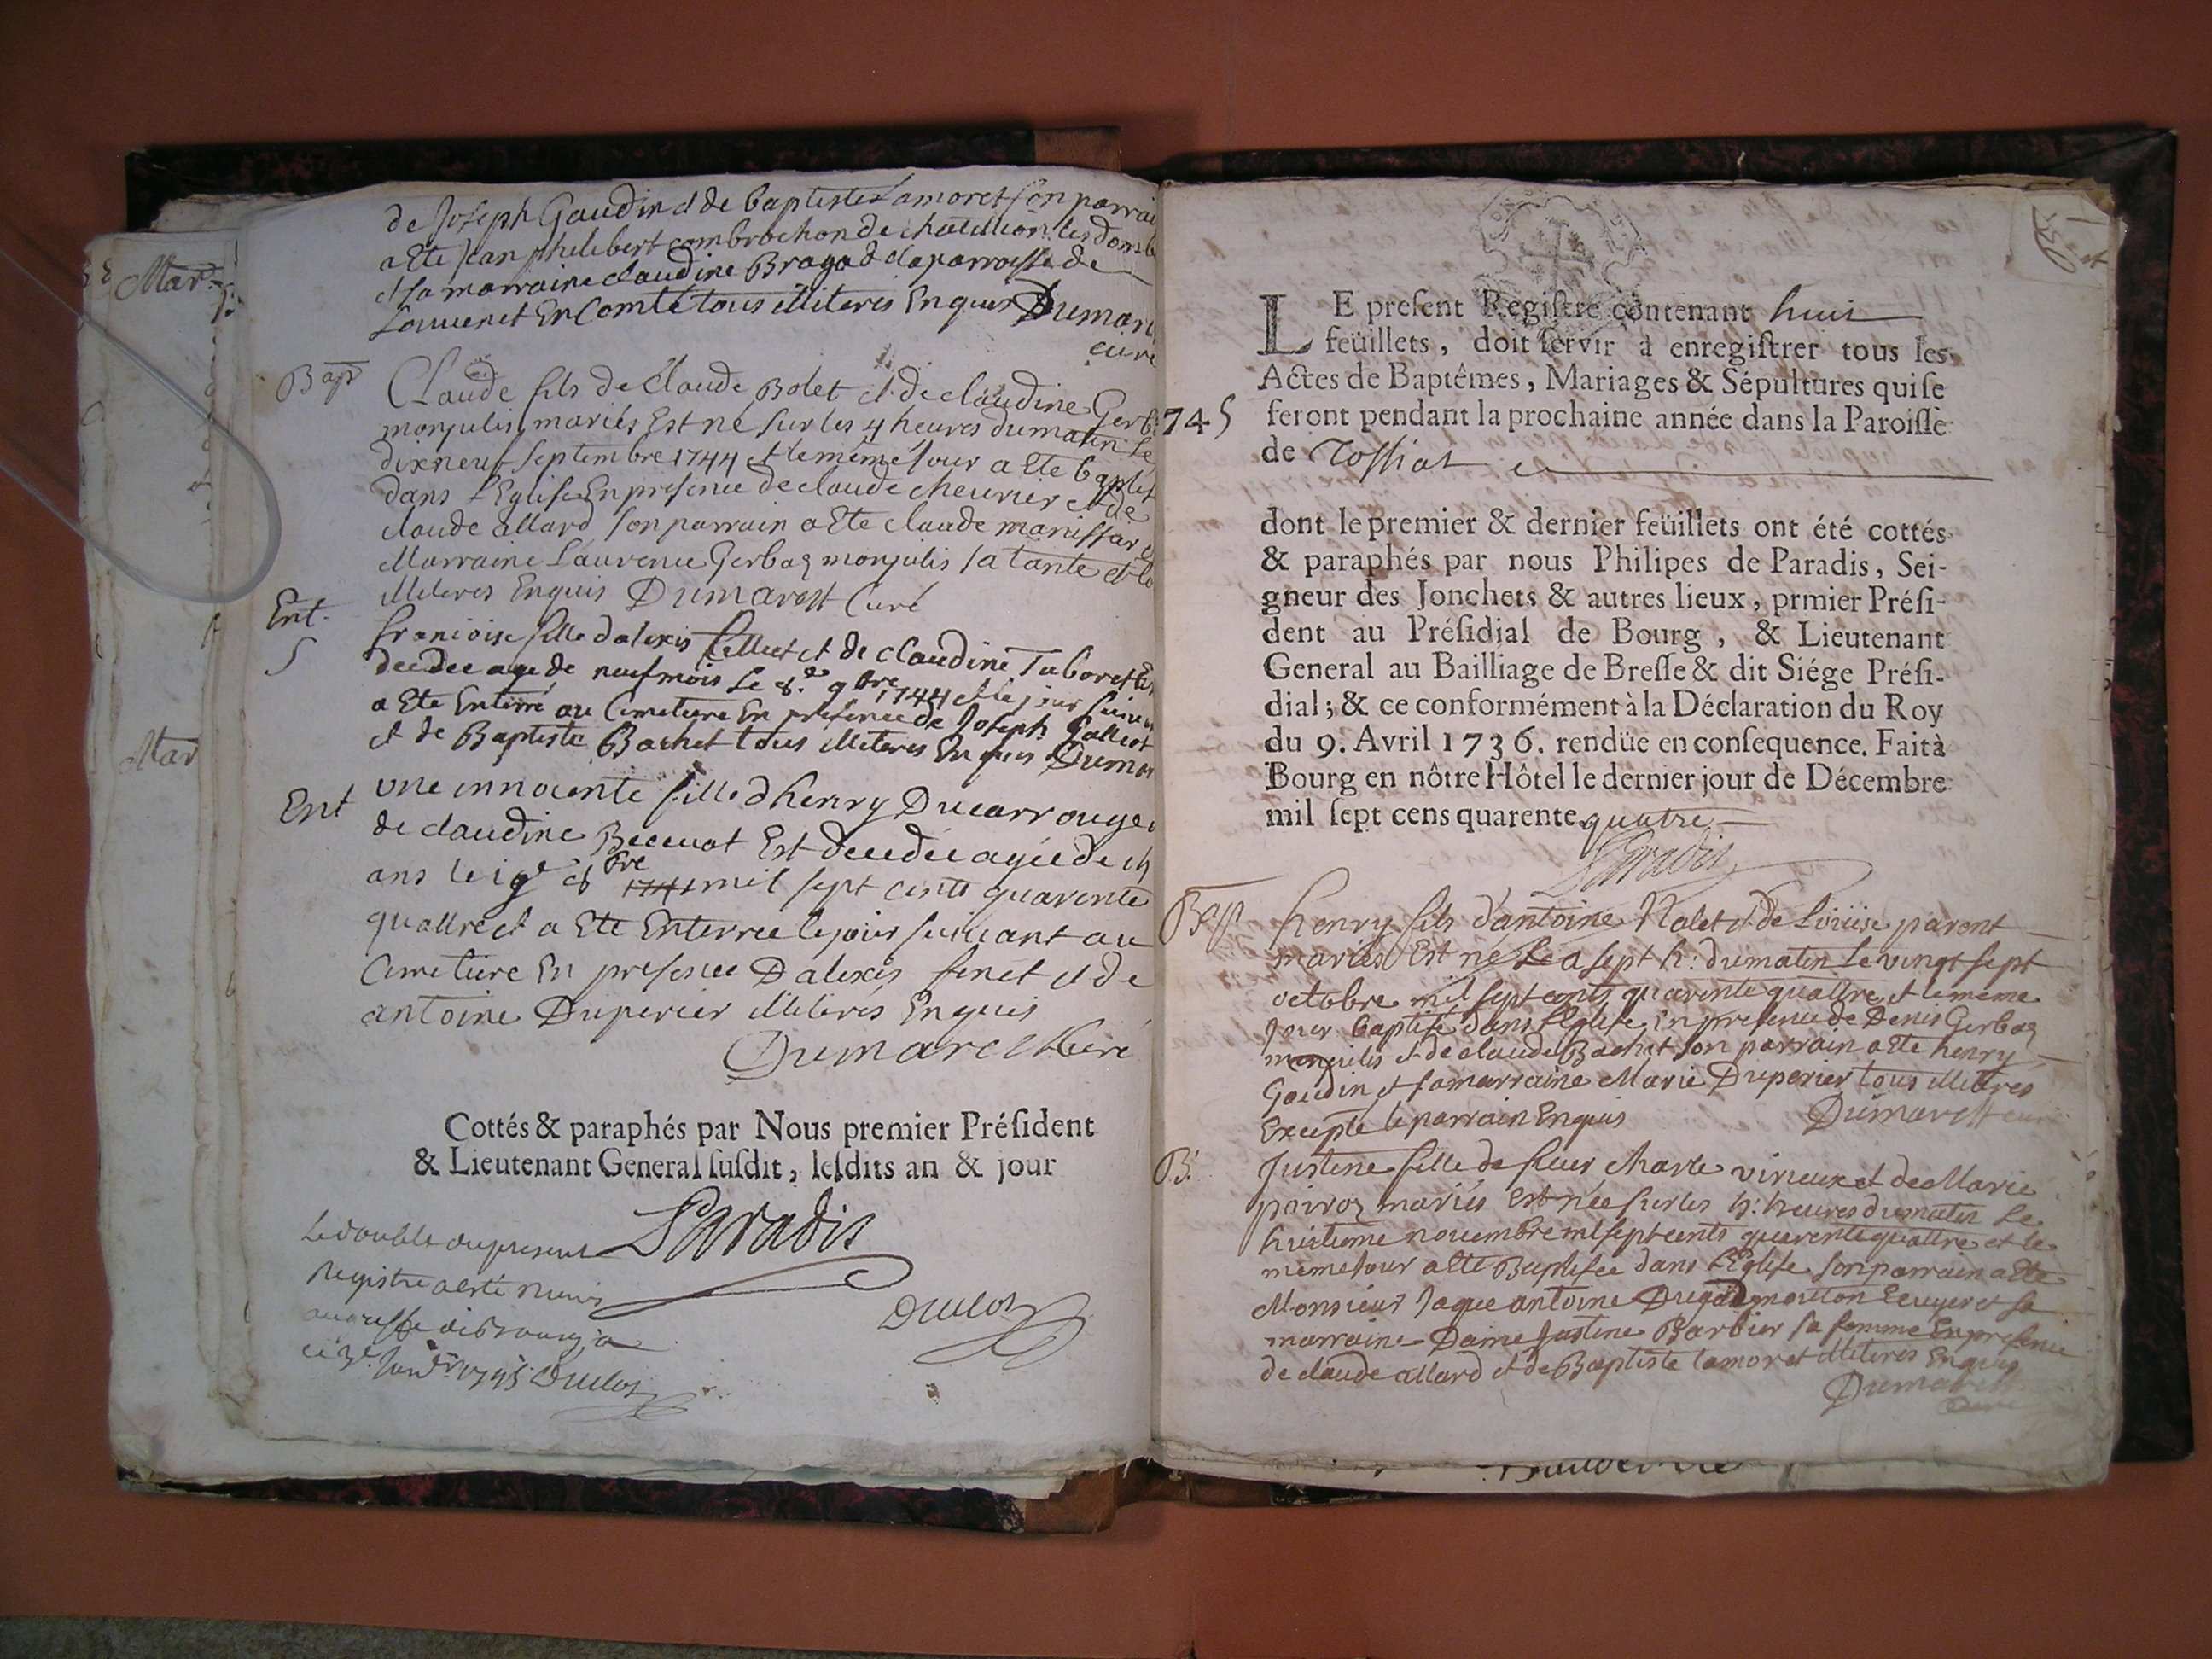 Mar
Mar
de Joseph Gaudin et de baptiste Lamoret son parrai
a Ete jean philibert combrochon de chatillion les domb
et sa marraine claudine Bragod de la parroisse de
Louvenet En Comté tous illiteres Enquis Dumar
curé
Bap
Claude fils de claude Bolet et de claudine Gerb
monjulis mariés Est né sur les 4 heures du matin le
dixneuf septembre 1744 et le même jour a Ete baptis
dans l'Eglise En presence de claude cheurier et de
claude allard son parrain a Ete claude manissar
Marraine Laurence Gerbaz monjulis sa tante et
illiteres Enquis Dumarest Curé
Ent.
S
francoise fille d'alexis et de claudine Taboret Est
decedee agee de neuf mois le 8.e 9bre 1744 et le jour suiva
a Ete Enterré au Cimetiere En presence de Joseph Galliot
et de Baptiste Bachet tous illiteres Enquis Dumar
Ent
une innocente fille d'henry Ducarrouge
de claudine Becenot Est decedée agée de
ans le 19e 8bre 1744 mil sept cents quarente
quattre et a Ete Enterree le jour suivant au
Cimetiere En presence D'alexis finet et de
antoine Duperier illiterés Enquis
Dumarest Curé
Cottés & paraphés par Nous premier Préſident
& Lieutenant General ſuſdit, leſdits an & jour
Paradis
Le double du present
Registre a esté remis
au greffe de Bourg
ce 3e Janvr 1745 Duclos
Duclos
745
LE preſent Regiſtre contenant huit
feüillets, doit ſervir à enregiſtrer tous les
Actes de Baptêmes, Mariages & Sépultures qui ſe
feront pendant la prochaine année dans la Paroiſſe
de Tossiat
dont le premier & dernier feüillets ont été cottés
& paraphés par nous Philipes de Paradis, Sei-
gneur des Jonchets & autres lieux, prmier Préſi-
dent au Préſidial de Bourg, & Lieutenant
General au Bailliage de Breſſe & dit Siége Préſi-
dial; & ce conformément à la Déclaration du Roy
du 9. Avril 1736. rendüe en conſequence. Fait à
Bourg en nôtre Hôtel le dernier jour de Décembre
mil ſept cens quarente quatre
Paradis
Bap
henry fils d'antoine Nalet et de Loüise parent
mariés Est né a sept h: du matin le vingt sept
octobre mil sept cents quarente quattre et le meme
jour baptisé dans l'Eglise En presence de Denis Gerbaz
monjulis et de claude Bachet son parrain a Ete henry
Gaudin et sa marraine Marie Duperier tous illiteres
Excepté le parrain Enquis Dumarest curé
B.
Justine fille de sieur charle virieux et de Marie
poiroz mariés Est née sur les h: heures du matin le
huitieme novembre mil sept cents quarente quattre et le
meme jour a Ete Baptisée dans l'Eglise son parrain a Ete
Monsieur Jaque antoine Dugad Ecuyer et sa
marraine Dame Justine Barbier sa femme En presence
de claude allard et de Baptiste lamoret illiteres Enquis
Dumarest
Curé